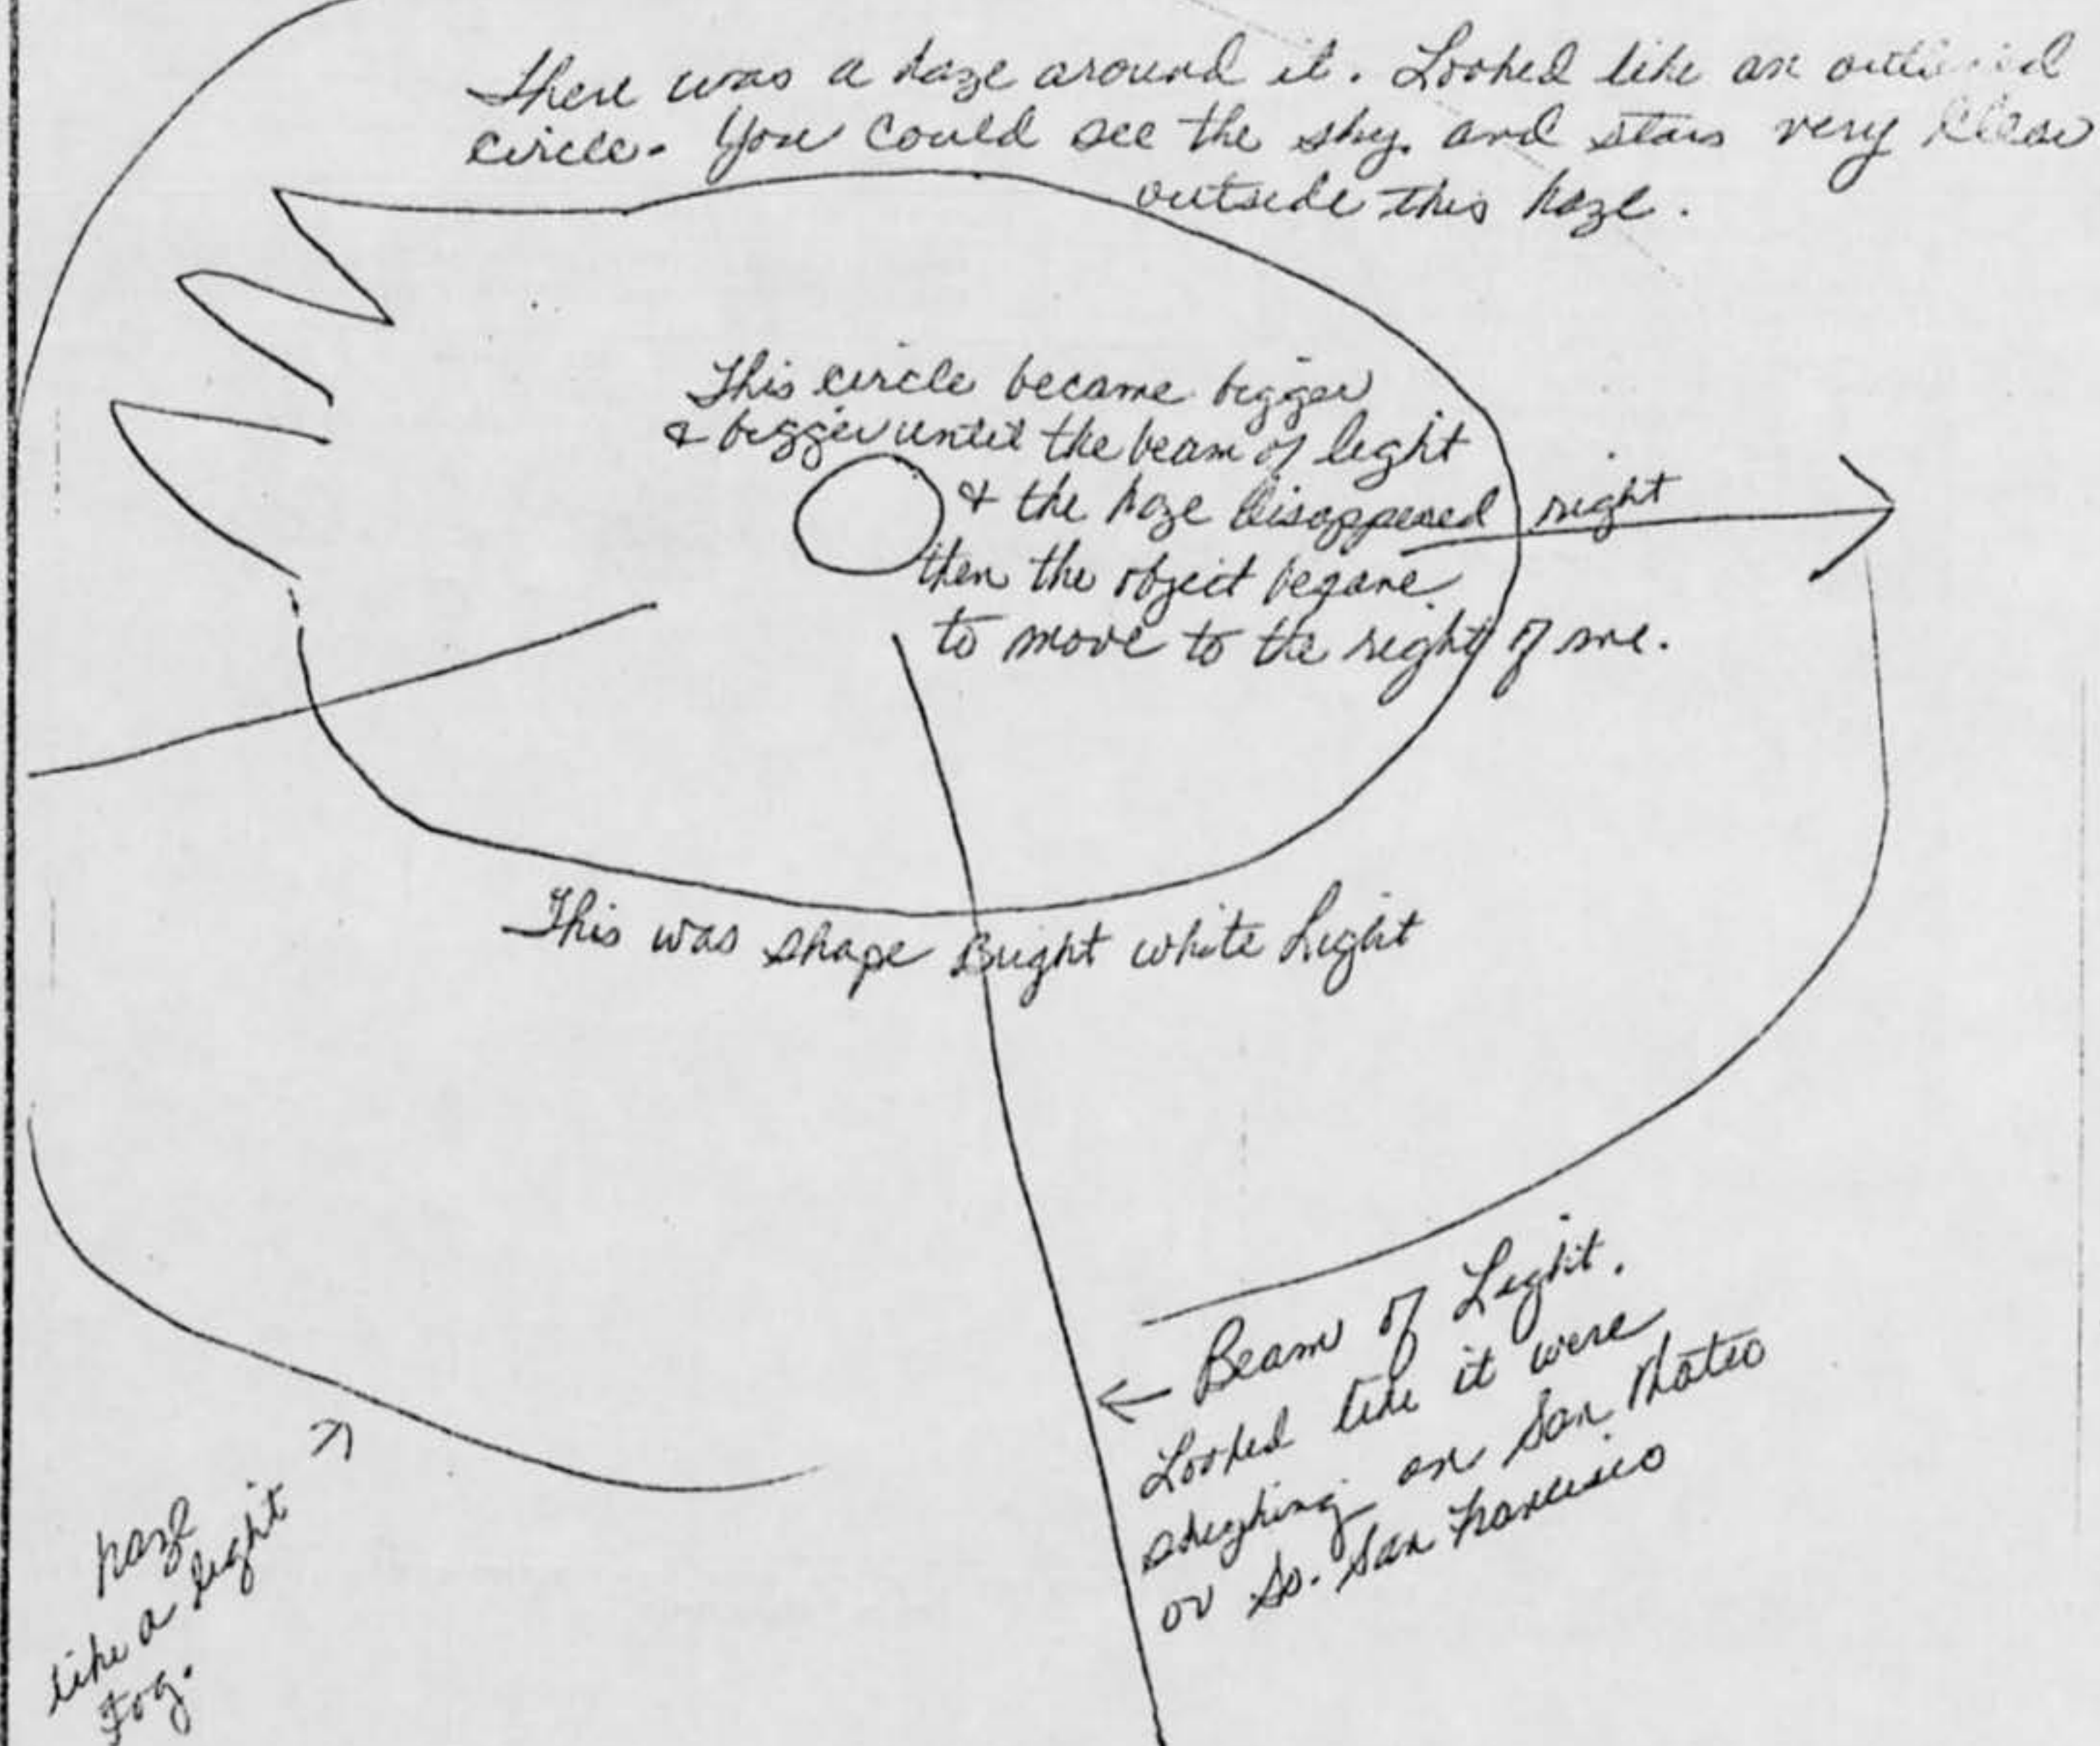 There was a haze around it. Looked like an outlined
circle. You could see the sky and stars very clear
outside this haze.
This circle became bigger
& bigger until the beam of light
& the haze disappeared
right
then the object begane
to move to the right of me.
This was shape Bright white Light
← Beam of Light.
Looked like it were
on San Mateo
or So. San Francisco
haze
like a light
fog.